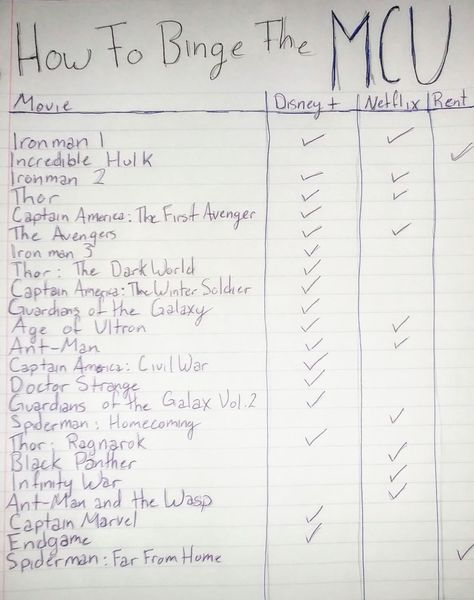 How To Binge The MCU
Movie Disney+ Netflix Rent
Ironman 1 ✓ ✓
Incredible Hulk ✓
Ironman 2 ✓ ✓
Thor ✓ ✓
Captain America: The First Avenger ✓
The Avengers ✓ ✓
Iron man 3 ✓
Thor: The Dark World ✓
Captain America: The Winter Soldier ✓
Guardians of the Galaxy ✓
Age of Ultron ✓ ✓
Ant-Man ✓ ✓
Captain America: Civil War ✓
Doctor Strange ✓
Guardians of the Galax Vol.2 ✓
Spiderman: Homecoming ✓
Thor: Ragnarok ✓
Black Panther ✓
Infinity War ✓
Ant-Man and the Wasp ✓
Captain Marvel ✓
Endgame ✓
Spiderman: Far From Home ✓